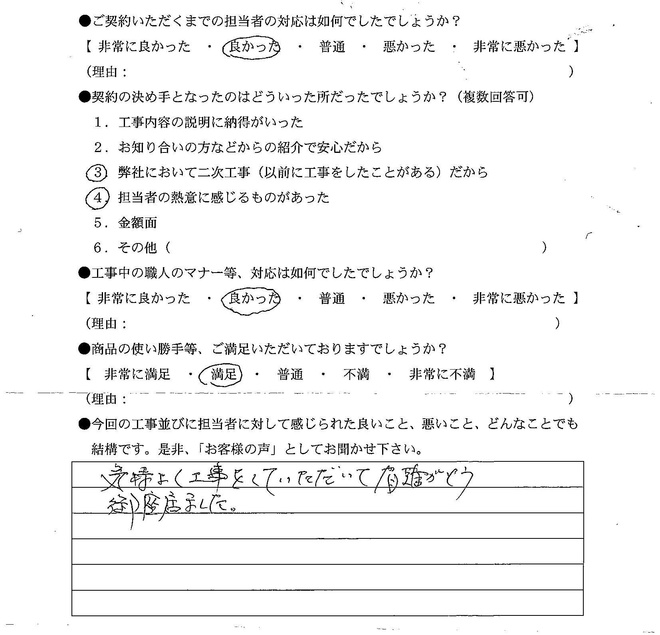 ●ご契約いただくまでの担当者の対応は如何でしたでしょうか？
【 非常に良かった ・ 良かった ・ 普通 ・ 悪かった ・ 非常に悪かった 】
（理由： ）
●契約の決め手となったのはどういった所だったでしょうか？（複数回答可）
１．工事内容の説明に納得がいった
２．お知り合いの方などからの紹介で安心だから
３ 弊社において二次工事（以前に工事をしたことがある）だから
４．担当者の熱意に感じるものがあった
５．金額面
６．その他（ ）
●工事中の職人のマナー等、対応は如何でしたでしょうか？
【 非常に良かった ・ 良かった ・ 普通 ・ 悪かった ・ 非常に悪かった 】
（理由： ）
●商品の使い勝手等、ご満足いただいておりますでしょうか？
【 非常に満足 ・ 満足 ・ 普通 ・ 不満 ・ 非常に不満 】
（理由： ）
●今回の工事並びに担当者に対して感じられた良いこと、悪いこと、どんなことでも
結構です。是非、「お客様の声」としてお聞かせ下さい。
気持よく工事をしていただいて有難がとう
御座居ました。